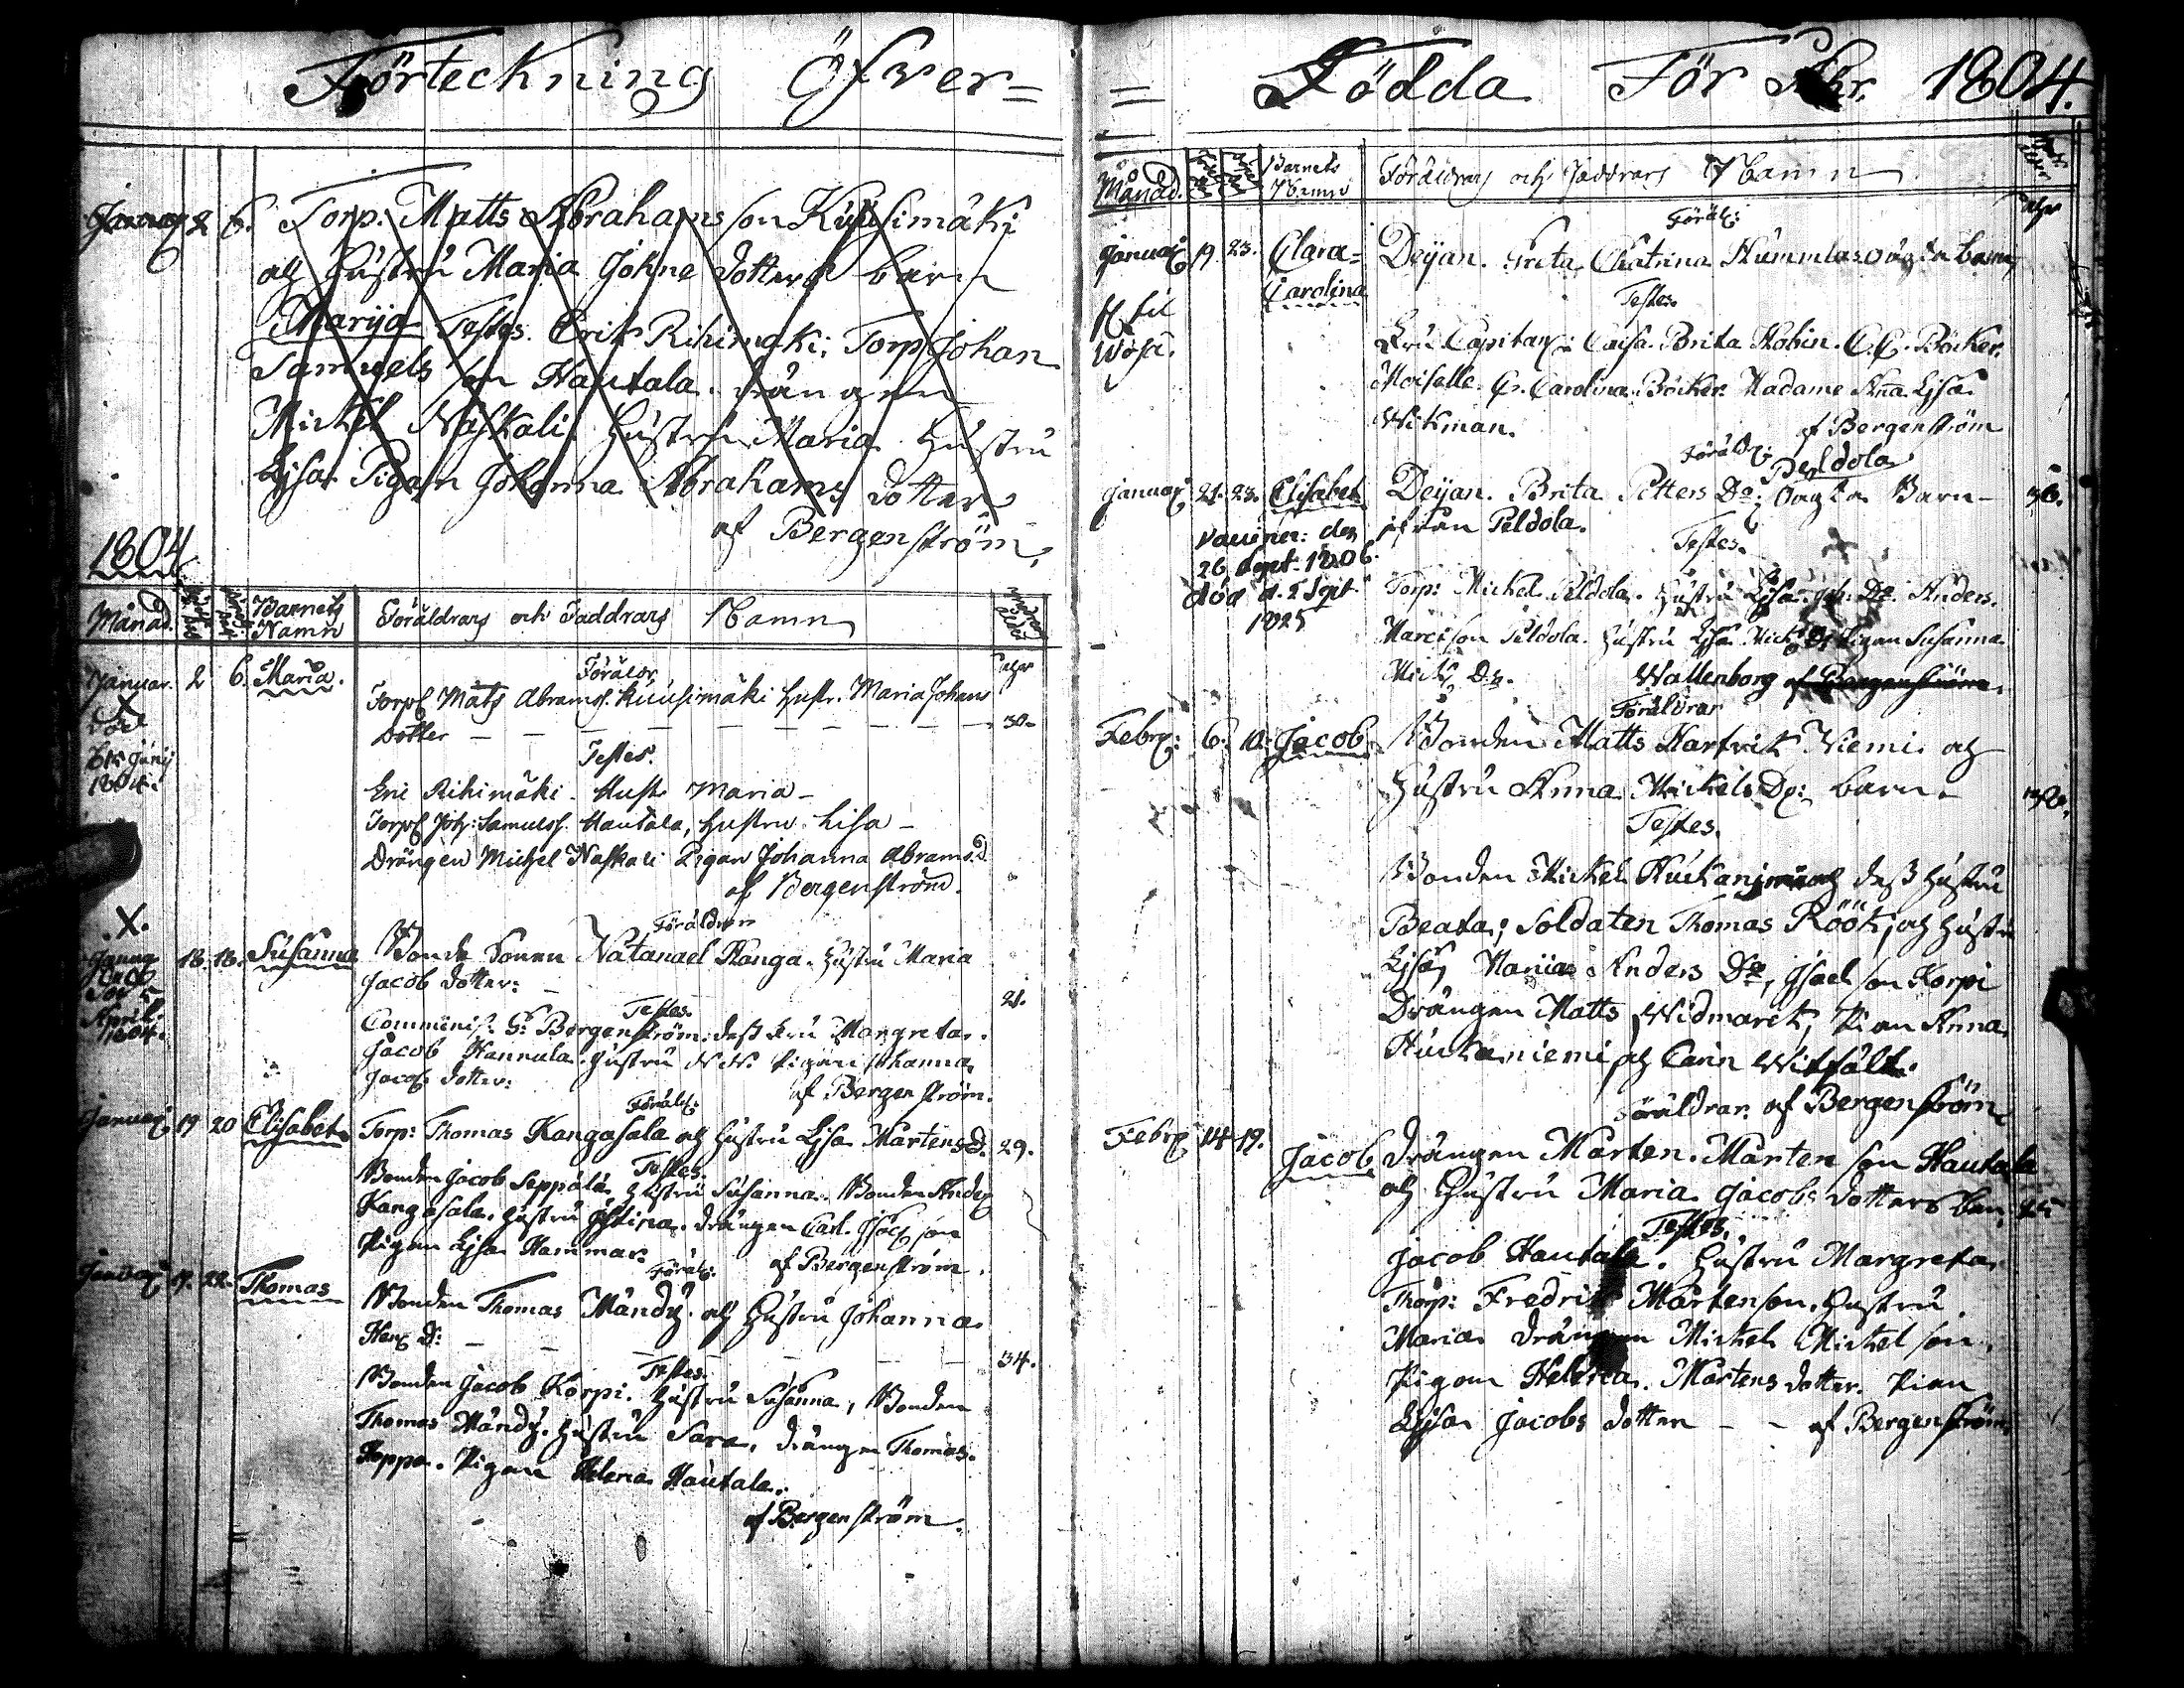 Förteckning öfver=
Januar 2 6. Torp: Matts Abrahams son Kuusimäki
och Hustru Maria Johns dotters barn
Marija Testes. Erik Rihimäki; Torp Johan
Samuels son Hautala. Drängen
Michel Naskali. Hustru Maria Hustru
Lisa Pigan Johanna Abrahams dotter
af Bergenström.
1804
Månad. Barnets Namn Föräldrars och Faddrars Namn
Januar. 2 6. Maria. Föräldr.
Torp Matts Abrams. Kuusimäki Hustr. Maria Johans
dotter 30.
död Juny 1804.
Testes.
Eric Rihimäki. Hustr Maria
Torp Joh: Samuelss. Hautala, Hustru Lisa
Drängen Michel Naskali Pigan Johanna Abrams.d.
af Bergenström.
X.
Januar 18. 18. Susanna Föräldrar
Bonde Sonen Natanael Kanga. Hustru Maria
Jacob dotter: 21.
död April 1804.
Testes.
Comminist. G: Bergenström. dess Fru Margreta.
Jacob Hannula. Hustru N.N. Pigan Johanna
Jacobs dotter: af Bergenström.
Januar 19 20 Elisabet Föräld:
Torp: Thomas Kangasala och Hustru Lisa Mårtensd. 29.
Testes.
Bonden Jacob Seppälä Hustru Susanna. Bonden Anders
Kangasala. Hustru Stina. Drängen Carl. Isacs son
Pigan Lisa Hammar. af Bergenström.
Januar 19. 22. Thomas Föräld:
Bonden Thomas Mändy. och Hustru Johanna
Henr. D: 34.
Testes.
Bonden Jacob Korpi. Hustru Susanna, Bonden
Thomas Mändy. Hustru Sara. Drängen Thomas
Koppa. Pigan Helena Hautala.
af Bergenström.
= Födda För Åhr. 1804.
Månad. Barnets Namn Föräldrars och Faddrars Namn
Januar 19. 23. Clara= Carolina Föräld:
Deijan. Greta Chatrina Hummlas oägta barn
Testes.
Fru Capitan: Caisa Brita Robin. C.C. Böcker.
Moiselle. Gr. Carolina Böcker. Madame Anna Lisa
Wikman. af Bergenström
Januar 21. 23. Elisabet Föräldr: Peldola
Deijan. Brita Petters Dr: Oägta Barn 36.
ifrån Peldola.
Vacciner: den 26 Sept 1806.
död d. 2 Sept 1825
Testes.
Torp: Michel Peldola. Hustru Lisa Joh. Dr. Anders.
Marcison Peldola. Hustru Lisa Mick Dr Pigan Susanna
Mich Dr. Wallenborg af Bergenström.
Febr: 6. 10. Jacob Föräldrar
Bonden Matts Hartvik Niemi och
Hustru Anna Mickels Dr: barn.
Testes.
Bonden Mickel Huckaniemi och dess Hustru
Beata; Soldaten Thomas Röök, och Hustru
Lisa, Maria Anders Dr, Isael son Korpi
Drängen Matts Widmarck, Pian Anna
Huckaniemi och Carin Witfält.
Föräldrar. af Bergenström
Febr 14 19. Jacob Drängen Mårten. Mårten son Hautala
och Hustru Maria Jacobs dotters barn 25
Testes.
Jacob Hautala. Hustru Margreta
Thorp: Fredrik Mårtenson. Hustru
Maria Drängen Michel Michel son.
Pigan Helena. Mårtens dotter. Pian
Lisa Jacobs dotter - - af Bergenström